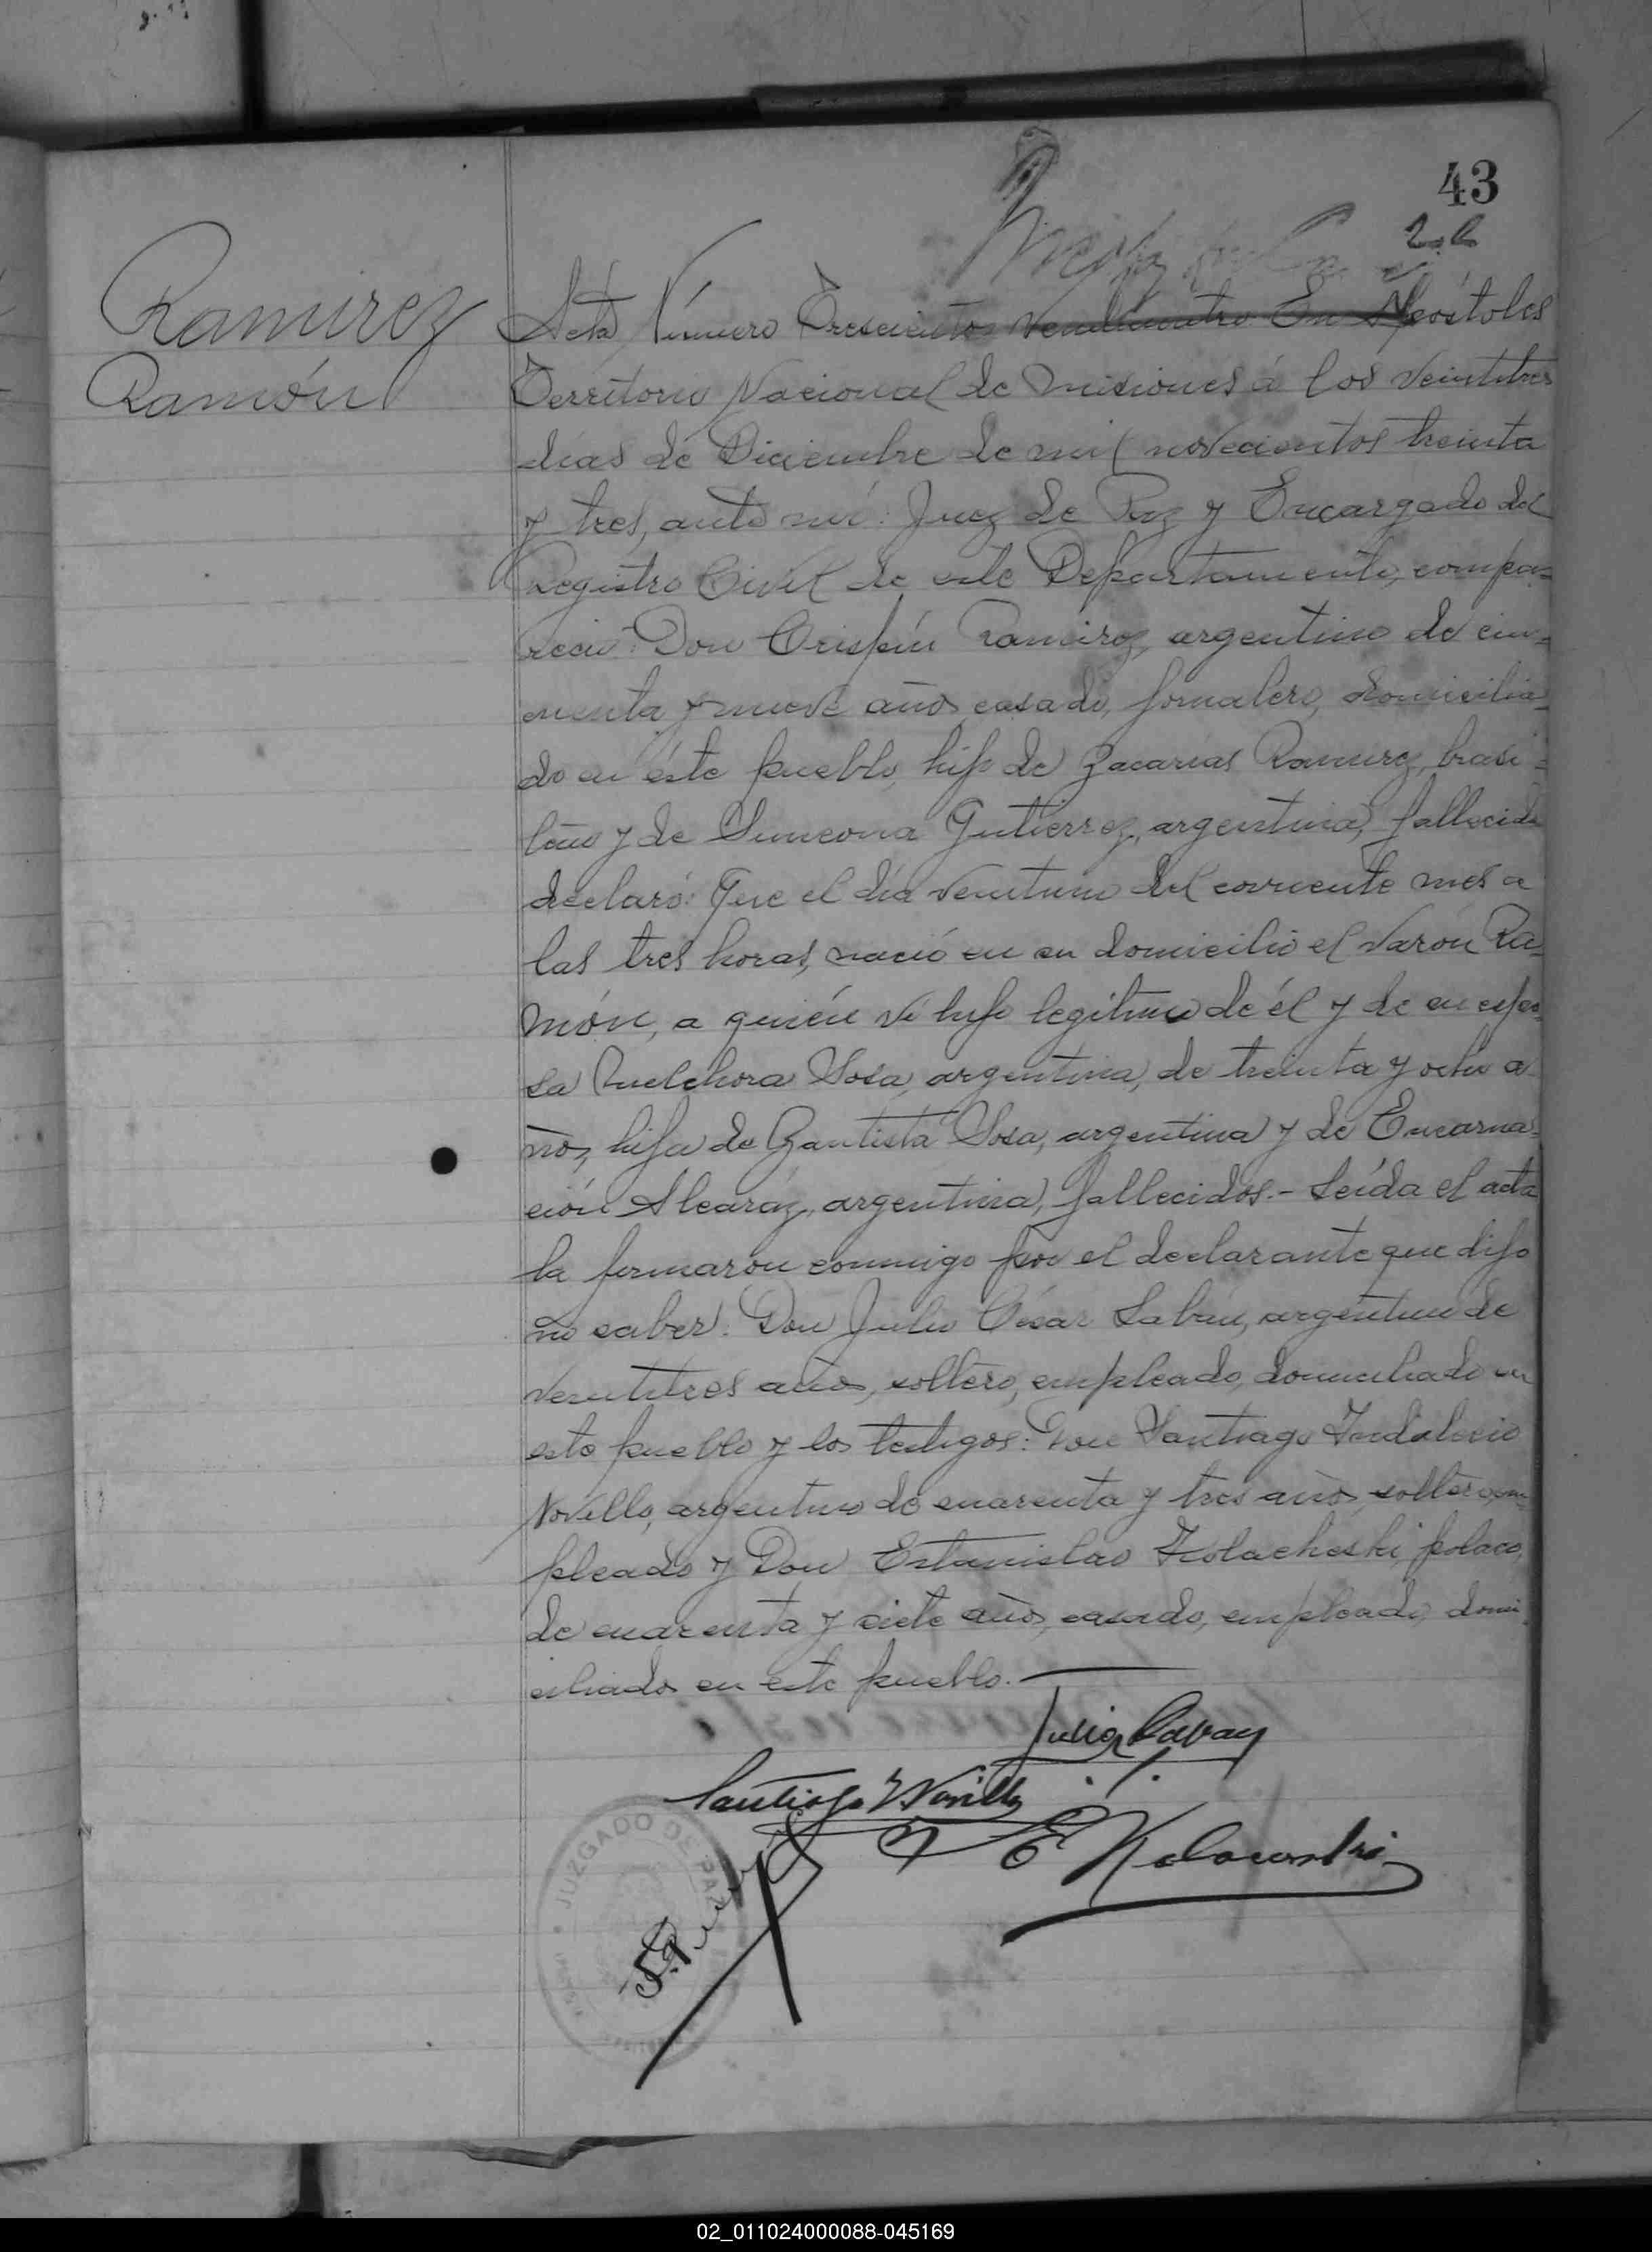 43
Ramirez
Ramón
Acta Número Trescientos Veinticuatro En Apóstoles
Territorio Nacional de Misiones á los veintitres
días de Diciembre de mil novecientos treinta
y tres, ante mi: Juez de Paz y Encargado del
Registro Civil de este Departamento, compa=
reció: Don Crispín Ramirez, argentino de cin=
cuenta y nueve años, casado, jornalero, domicilia=
do en éste pueblo, hijo de Zacarías Ramirez, brasi=
leño y de Simeona Gutierrez, argentina, fallecida
declaró: Que el día veintiuno del corriente mes a
las tres horas, nació en su domicilio el varón Ra=
món, a quién vi hijo legítimo de él y de su espo=
sa Melchora Sosa, argentina, de treinta y ocho a
ños, hija de Bautista Sosa, argentina y de Encarna=
ción Alcaráz, argentina, fallecidos.- Leída el acta
la firmaron conmigo por el declarante que dijo
no saber: Don Julio César Labán, argentino de
veintitres años, soltero, empleado, domiciliado en
este pueblo y los testigos: Don Santiago Indalecio
Novillo, argentino de cuarenta y tres años, soltero, em=
pleado y Don Estanislao Kolacheski, polaco,
de cuarenta y siete años, casado, empleado, domi=
ciliados en este pueblo.
Santiago Y Novillo
JUZGADO DE PAZ
02_011024000088-045169